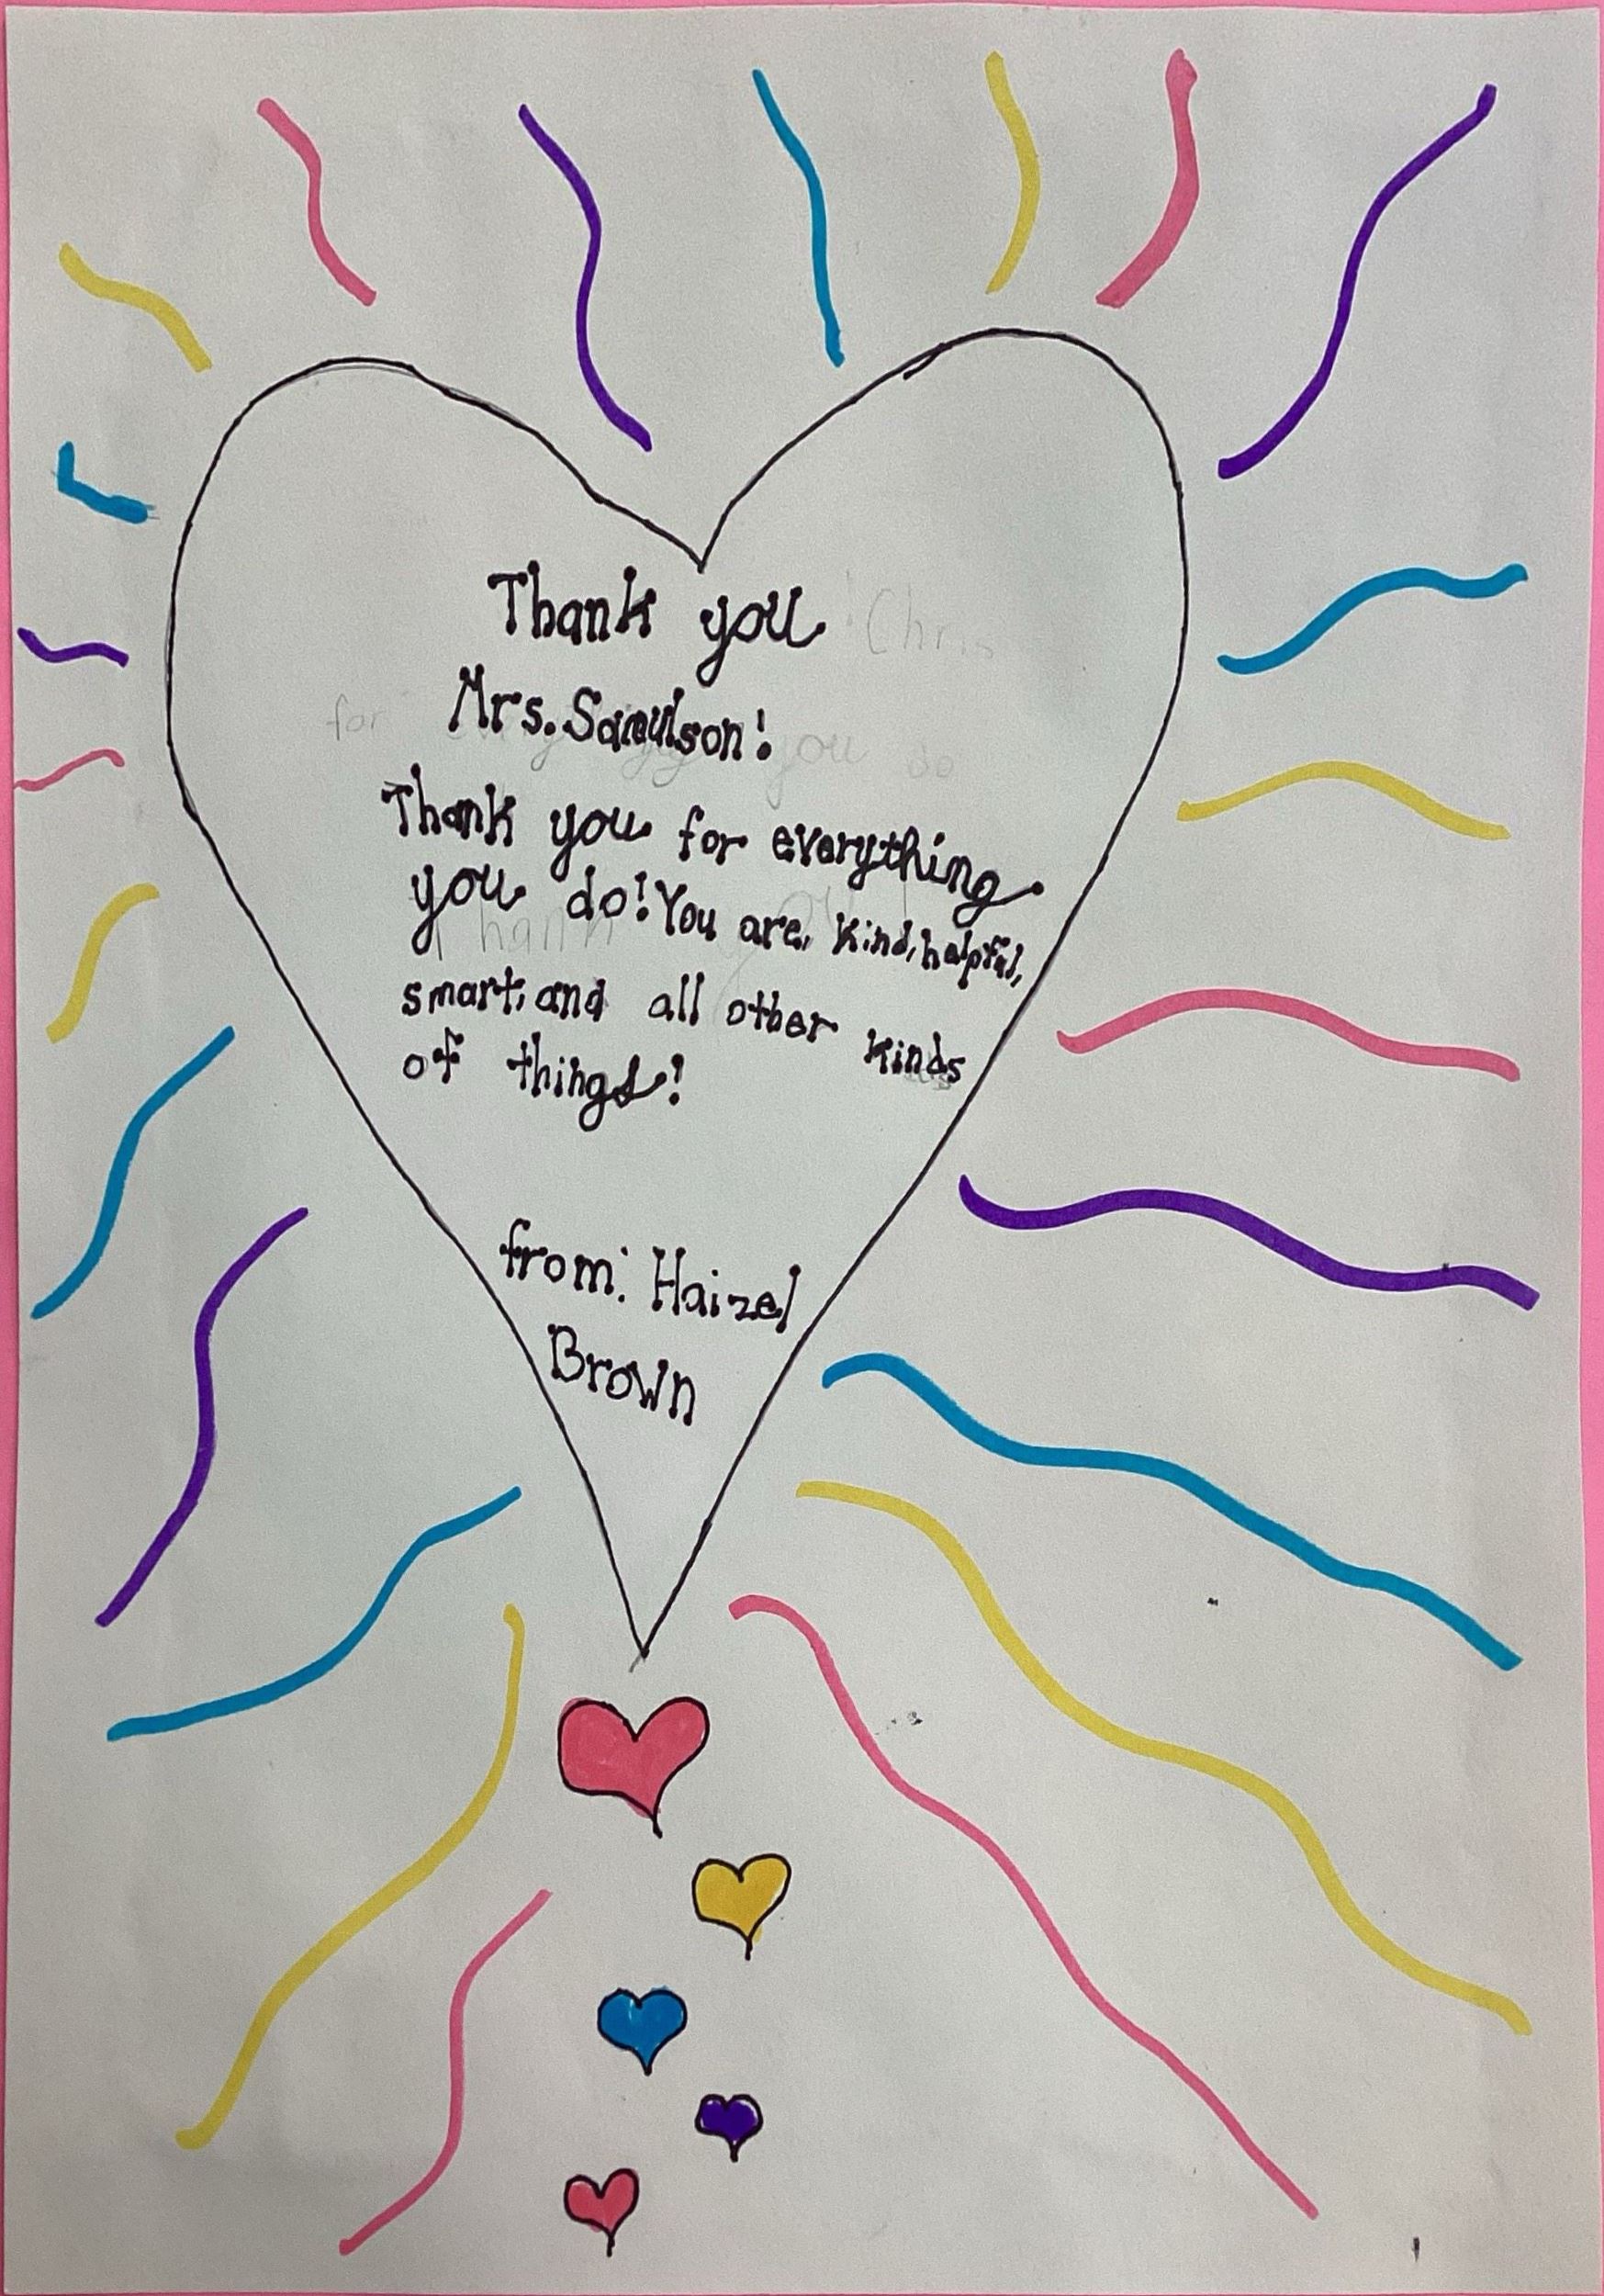 Thank you
Mrs. Samulson!
Thank you for everything
you do! You are, kind, helpful,
smart, and all other kinds
of things!
from: Haizel
Brown